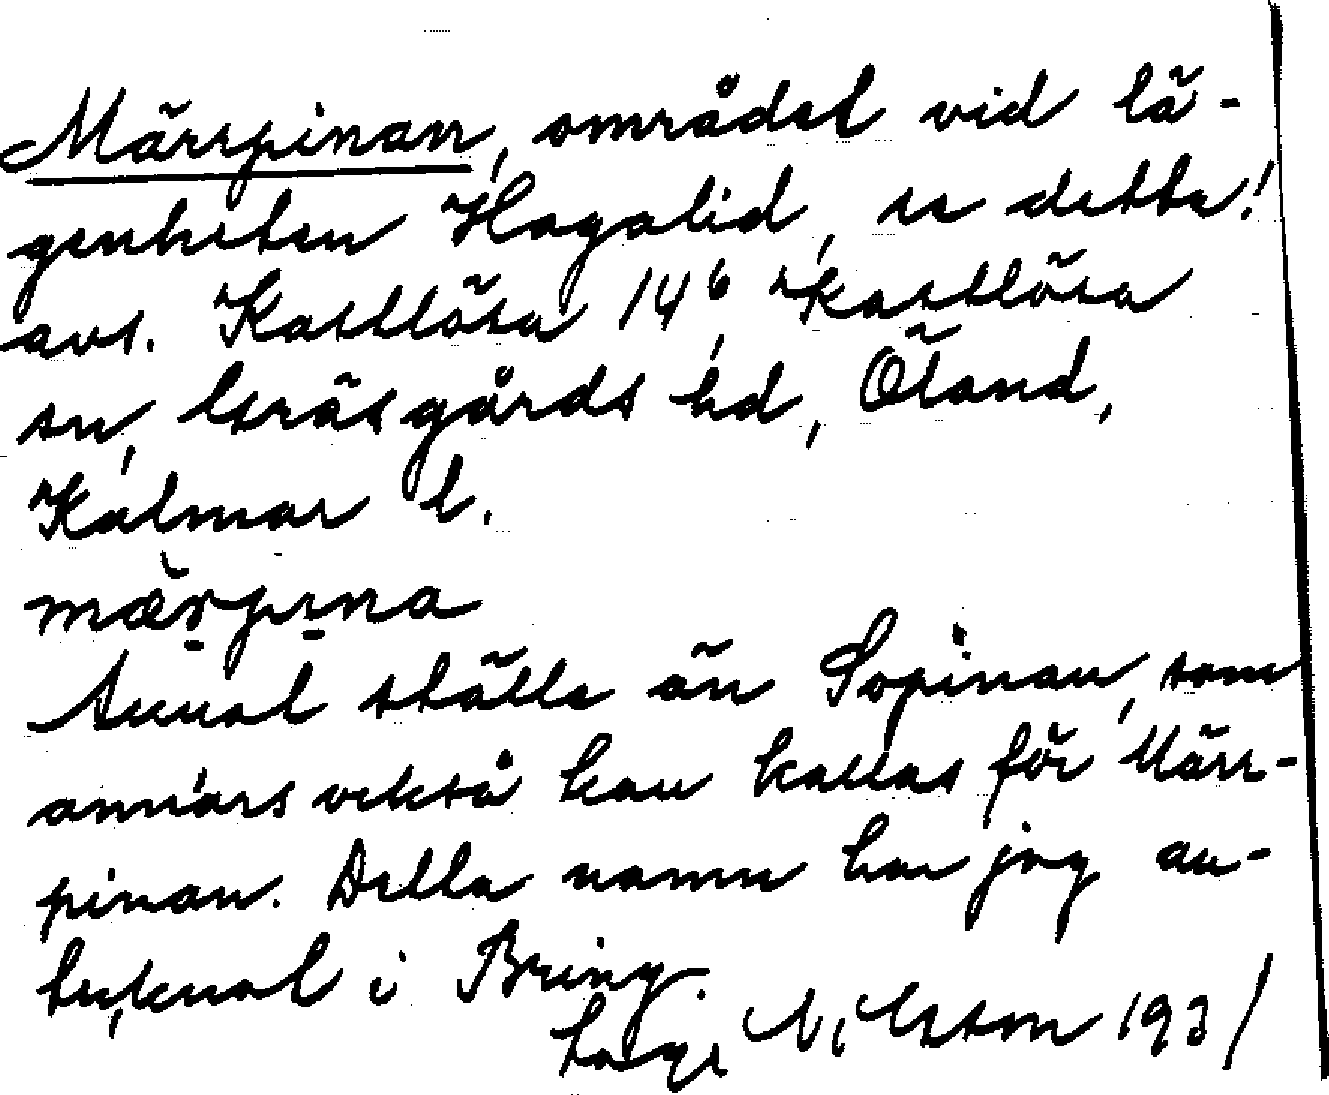 Märrpinan, området vid lä-
genheten Hagalid, se detta!
avs. Kastlösa 14⁶, Kastlösa
sn, Gräsgårds hd, Öland,
Kalmar l.
mærpına
Annat ställe än Sopinan, som
annars också kan kallas för Märr-
pinan. Detta namn har jag an-
tecknat i Bring.
Tage Nilsson 1931